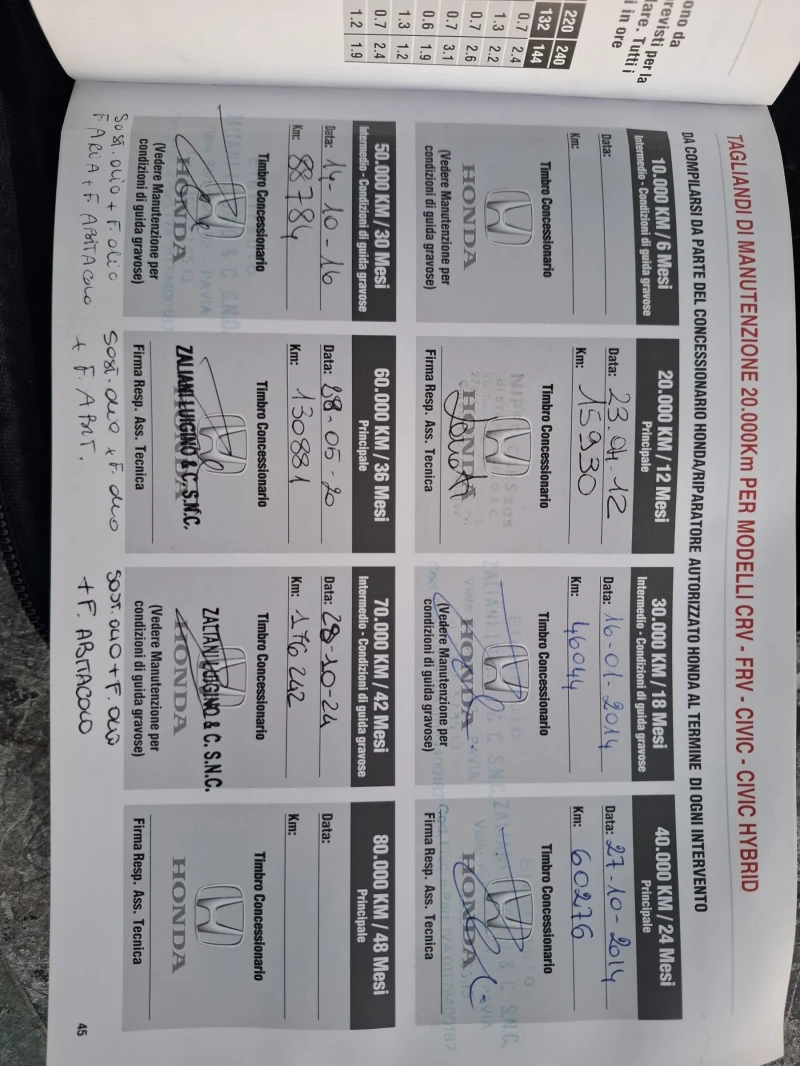 ono da
revisti per la
lare. Tutti i
i in ore
220 240
132 144
0.7 2.4
1.3 2.2
0.7 2.6
0.7 3.1
0.6 1.9
1.3 1.2
0.7 2.4
1.2 1.9
TAGLIANDI DI MANUTENZIONE 20.000Km PER MODELLI CRV - FRV - CIVIC - CIVIC HYBRID
DA COMPILARSI DA PARTE DEL CONCESSIONARIO HONDA/RIPARATORE AUTORIZZATO HONDA AL TERMINE DI OGNI INTERVENTO
10.000 KM / 6 Mesi
Intermedio - Condizioni di guida gravose
Data:
Km:
Timbro Concessionario
HONDA
(Vedere Manutenzione per
condizioni di guida gravose)
20.000 KM / 12 Mesi
Principale
Data: 23.04.12
Km: 15930
Timbro Concessionario
HONDA
Firma Resp. Ass. Tecnica
30.000 KM / 18 Mesi
Intermedio - Condizioni di guida gravose
Data: 16-01-2014
Km: 46044
Timbro Concessionario
ZALIANI L & C. S.N.C.
Viale
HONDA
(Vedere Manutenzione per
condizioni di guida gravose)
40.000 KM / 24 Mesi
Principale
Data: 27-10-2014
Km: 60276
Timbro Concessionario
ZALIANI & C. S.N.C.
Viale
HONDA
Firma Resp. Ass. Tecnica
50.000 KM / 30 Mesi
Intermedio - Condizioni di guida gravose
Data: 14-10-16
Km: 88784
Timbro Concessionario
& C. S.N.C.
PAVIA
HONDA
(Vedere Manutenzione per
condizioni di guida gravose)
SOST. OLIO + F. OLIO
F. ARIA + F. ABITACOLO
60.000 KM / 36 Mesi
Principale
Data: 28-05-20
Km: 130881
Timbro Concessionario
HONDA
ZALIANI LUIGINO & C. S.N.C.
Firma Resp. Ass. Tecnica
SOST. OLIO + F. OLIO
+ F. ABIT.
70.000 KM / 42 Mesi
Intermedio - Condizioni di guida gravose
Data: 28-10-24
Km: 176242
Timbro Concessionario
ZALIANI LUIGINO & C. S.N.C.
HONDA
(Vedere Manutenzione per
condizioni di guida gravose)
SOST. OLIO + F. OLIO
+ F. ABITACOLO
80.000 KM / 48 Mesi
Principale
Data:
Km:
Timbro Concessionario
HONDA
Firma Resp. Ass. Tecnica
45